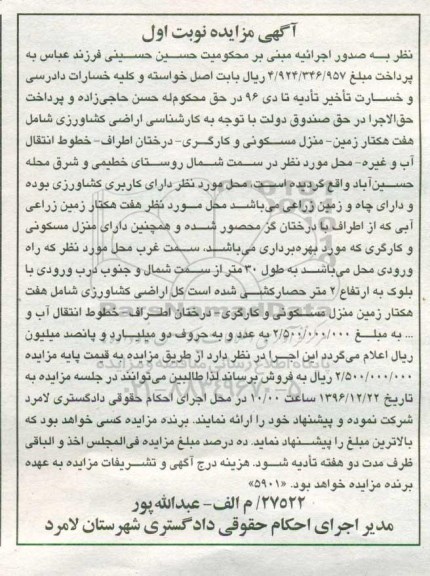 آگهی مزایده نوبت اول
نظر به صدور اجرائیه مبنی بر محکومیت حسین حسینی فرزند عباس به
پرداخت مبلغ ۴/۹۲۴/۳۴۶/۹۵۷ ریال بابت اصل خواسته و کلیه خسارات دادرسی
و خسارت تأخیر تأدیه تا دی ۹۶ در حق محکوم‌له حسن حاجی‌زاده و پرداخت
حق‌الاجرا در حق صندوق دولت با توجه به کارشناسی اراضی کشاورزی شامل
هفت هکتار زمین- منزل مسکونی و کارگری- درختان اطراف- خطوط انتقال
آب و غیره- محل مورد نظر در سمت شمال روستای خطیمی و شرق محله
حسین‌آباد واقع گردیده است. محل مورد نظر دارای کاربری کشاورزی بوده
و دارای چاه و زمین زراعی می‌باشد محل مورد نظر هفت هکتار زمین زراعی
آبی که از اطراف با درختان گز محصور شده و همچنین دارای منزل مسکونی
و کارگری که مورد بهره‌برداری می‌باشد. سمت غرب محل مورد نظر که راه
ورودی محل می‌باشد به طول ۳۰ متر از سمت شمال و جنوب درب ورودی با
بلوک به ارتفاع ۲ متر حصارکشی شده است کل اراضی کشاورزی شامل هفت
هکتار زمین منزل مسکونی و کارگری- درختان اطراف- خطوط انتقال آب و
... به مبلغ ۲/۵۰۰/۰۰۰/۰۰۰ به عدد و به حروف دو میلیارد و پانصد میلیون
ریال اعلام می‌گردد این اجرا در نظر دارد از طریق مزایده به قیمت پایه مزایده
۲/۵۰۰/۰۰۰/۰۰۰ ریال به فروش برساند لذا طالبین می‌توانند در جلسه مزایده به
تاریخ ۱۳۹۶/۱۲/۲۲ ساعت ۱۰/۰۰ در محل اجرای احکام حقوقی دادگستری لامرد
شرکت نموده و پیشنهاد خود را ارائه نمایند. برنده مزایده کسی خواهد بود که
بالاترین مبلغ را پیشنهاد نماید. ده درصد مبلغ مزایده فی‌المجلس اخذ و الباقی
ظرف مدت دو هفته تأدیه شود. هزینه درج آگهی و تشریفات مزایده به عهده
برنده مزایده خواهد بود. «۵۹۰۱»
۲۷۵۲۲/ م الف- عبدالله‌پور
مدیر اجرای احکام حقوقی دادگستری شهرستان لامرد